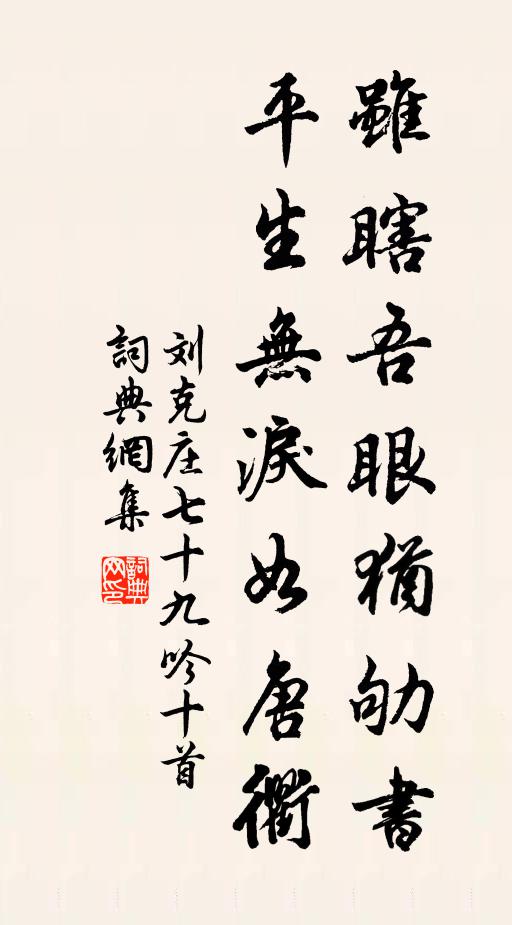 雖瞎吾眼猶劬書
平生無淚如唐衢
刘克庄七十九吟十首
詞典網集
詞典网印